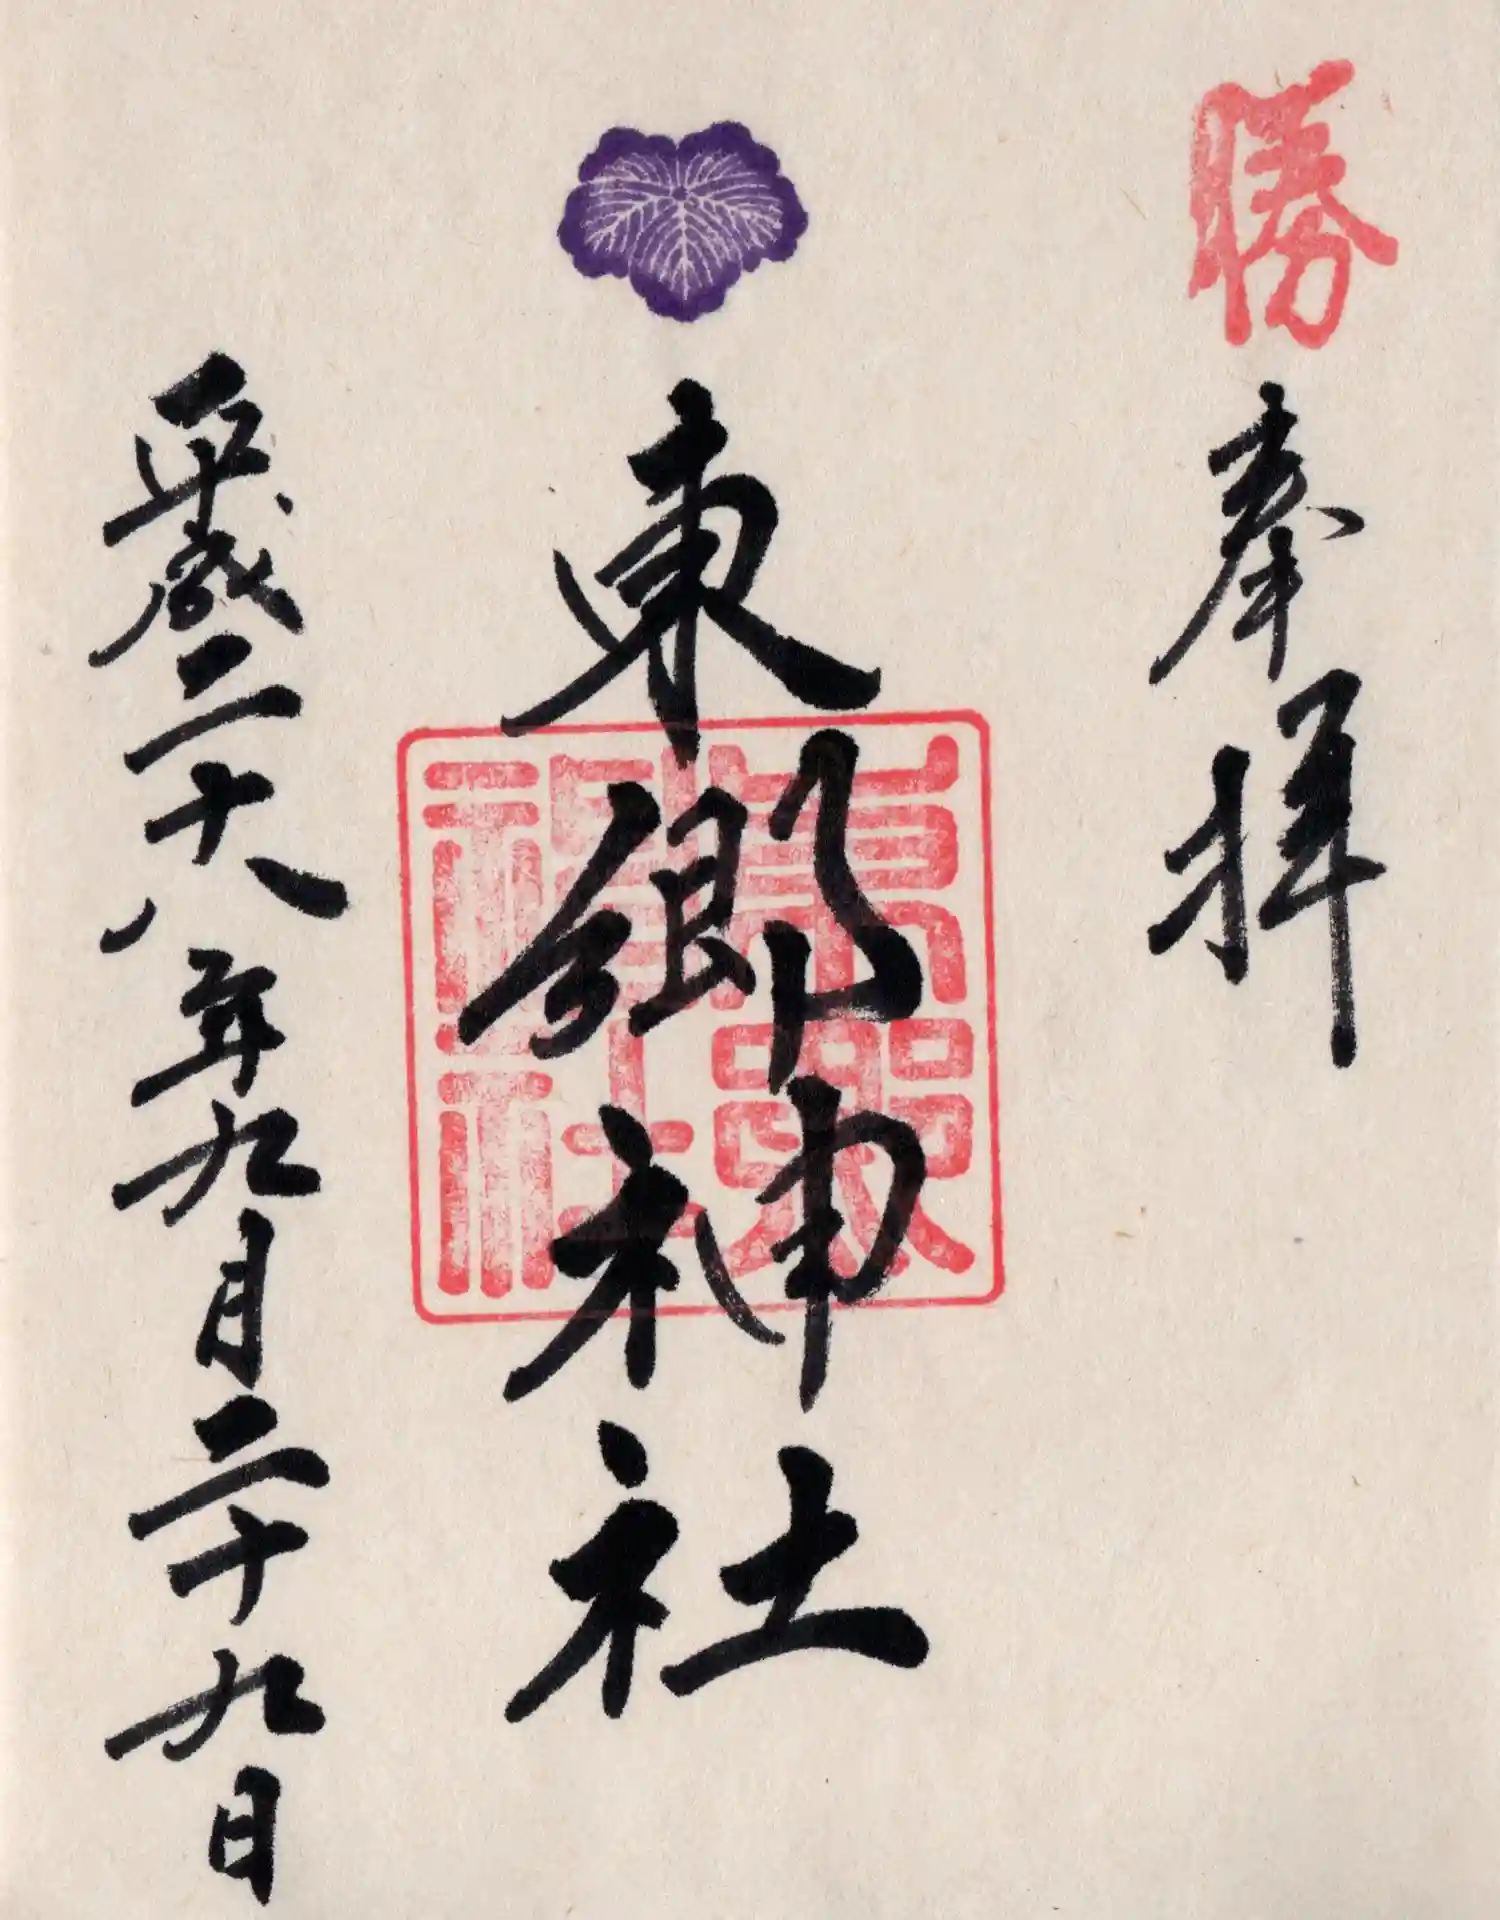 勝
奉拝
東郷神社
平成二十八年九月二十九日